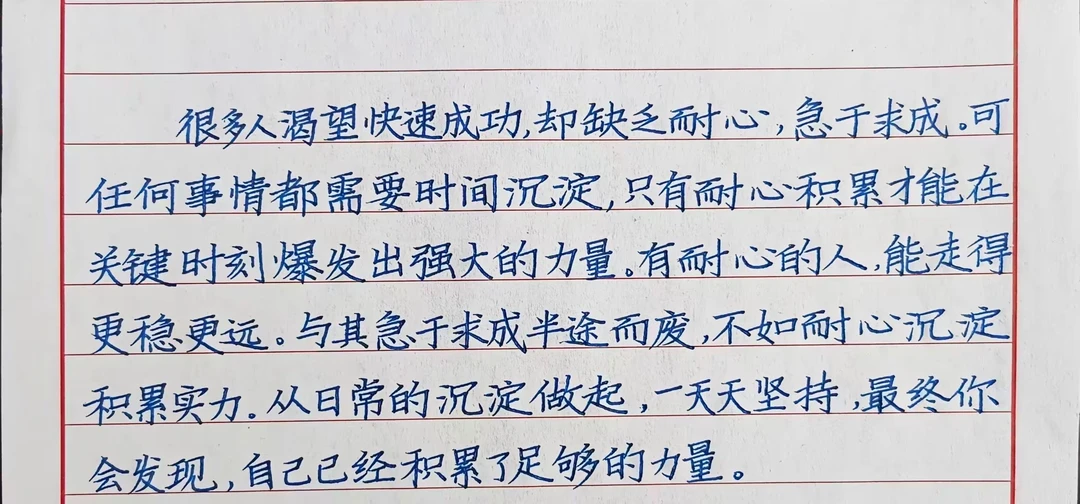 很多人渴望快速成功,却缺乏耐心,急于求成。可
任何事情都需要时间沉淀,只有耐心积累才能在
关键时刻爆发出强大的力量。有耐心的人,能走得
更稳更远。与其急于求成半途而废,不如耐心沉淀
积累实力。从日常的沉淀做起,一天天坚持,最终你
会发现,自己已经积累了足够的力量。